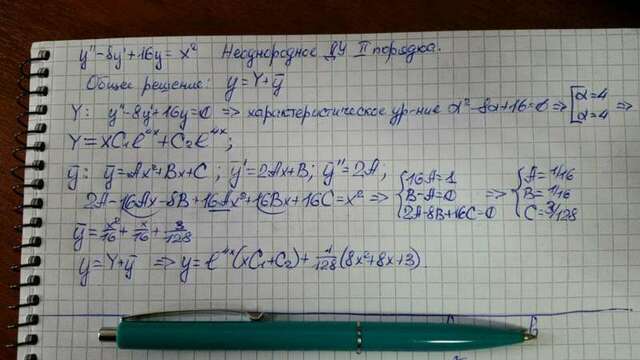 y'' - 8y' + 16y = x² Неоднородное ДУ II порядка.
Общее решение: y = Y + ȳ
Y: y'' - 8y' + 16y = 0 => характеристическое ур-ние α² - 8α + 16 = 0 => [α = 4 α = 4 =>
Y = xC₁e⁴ˣ + C₂e⁴ˣ;
ȳ: ȳ = Ax² + Bx + C; ȳ' = 2Ax + B; ȳ'' = 2A;
2A - 16Ax - 8B + 16Ax² + 16Bx + 16C = x² => {16A = 1 B - A = 0 2A - 8B + 16C = 0 => {A = 1/16 B = 1/16 C = 3/128
ȳ = x²/16 + x/16 + 3/128
y = Y + ȳ => y = e⁴ˣ(xC₁ + C₂) + 1/128(8x² + 8x + 3).